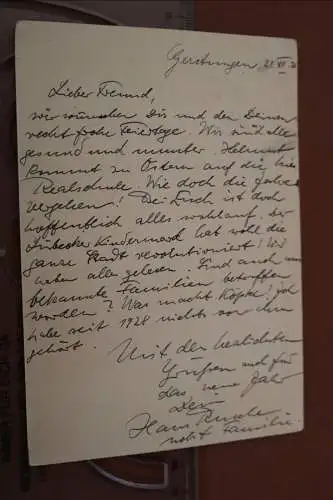 Gerstungen 21. XII. 30
Lieber Freund,
wir wünschen Dir und den Deinen
recht frohe Feiertage. Wir sind alle
gesund und munter. Helmut
kommt zu Ostern auf die hies.
Realschule. Wie doch die Jahre
vergehen! Bei Euch ist doch
hoffentlich alles wohlauf. Der
Lübecker Kindermord hat wohl die
ganze Stadt revolutioniert! Wir
haben alles gelesen. Sind auch uns
bekannte Familien betroffen
worden? Was macht Köpke? Ich
habe seit 1928 nichts von ihm
gehört.
Mit den herzlichsten
Grüßen auch für
das neue Jahr
Dein
Hans
nebst Familie.